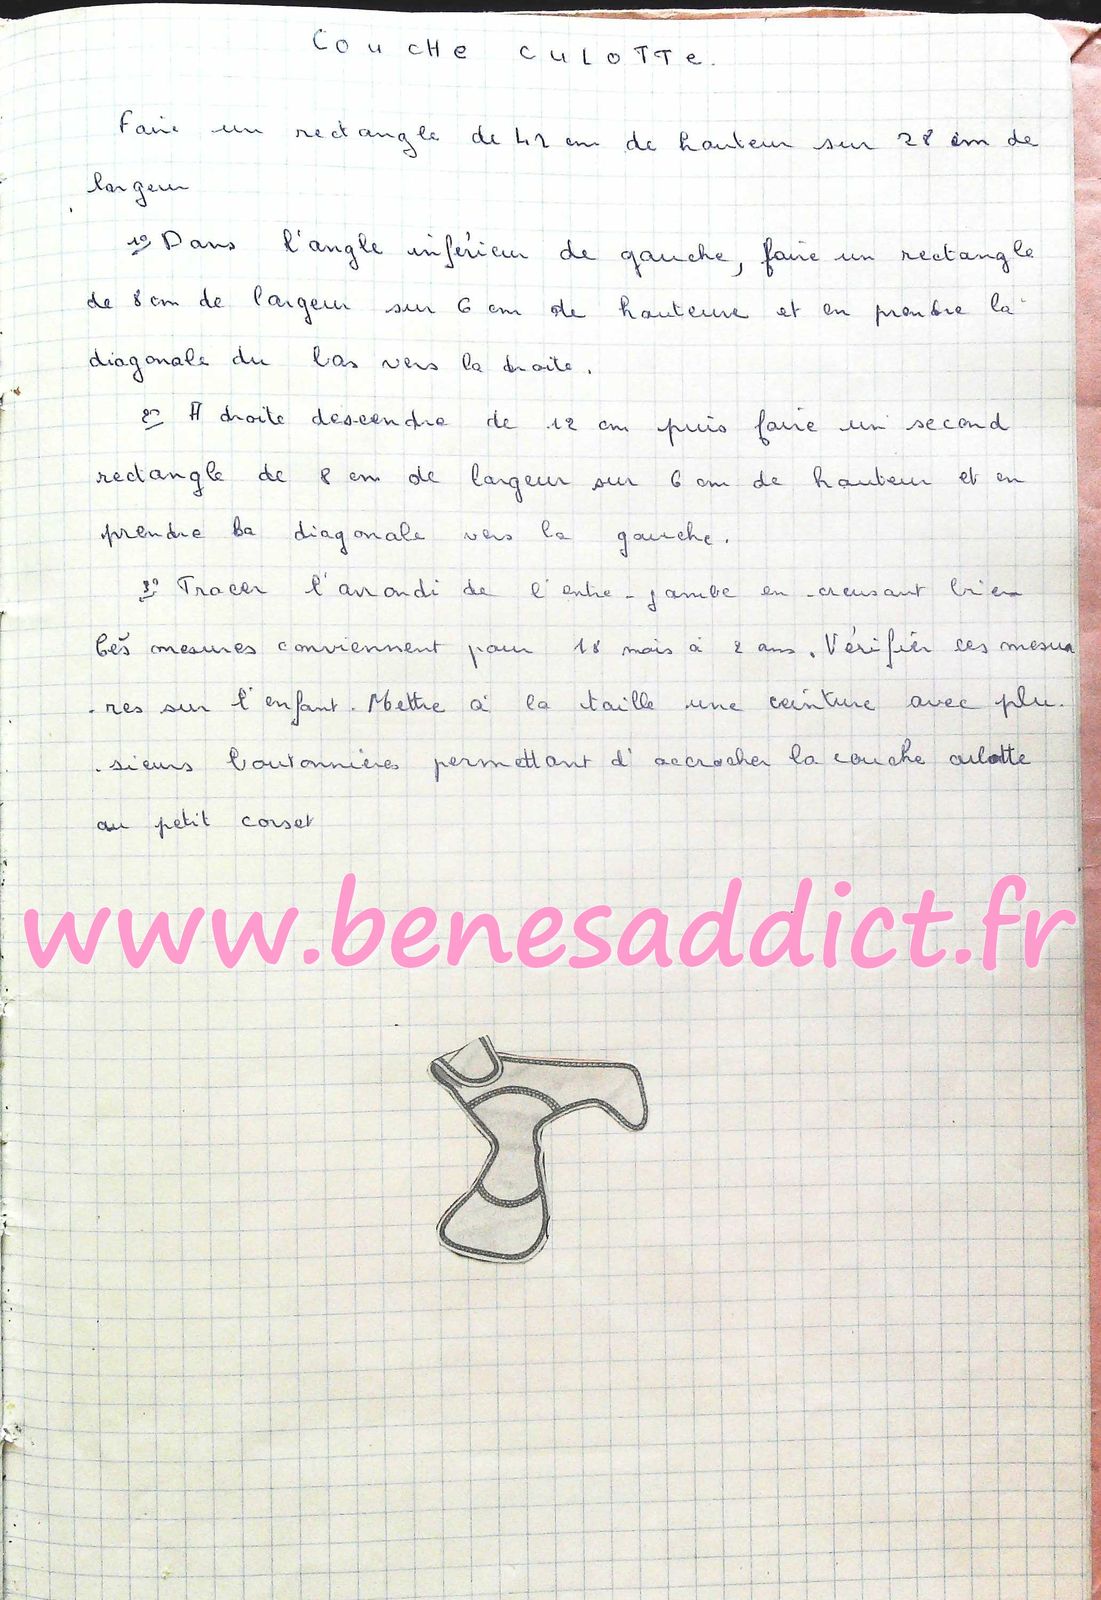 COUCHE CULOTTE.
Faire un rectangle de 42 cm de hauteur sur 28 cm de
largeur
1º Dans l'angle inférieur de gauche, faire un rectangle
de 8 cm de largeur sur 6 cm de hauteure et en prendre la
diagonale du bas vers la droite.
2º A droite descendre de 12 cm puis faire un second
rectangle de 8 cm de largeur sur 6 cm de hauteur et en
prendre la diagonale vers la gauche.
3º Tracer l'arrondi de l'entre-jambe en creusant bien
Ces mesures conviennent pour 18 mois à 2 ans. Vérifier ces mesu
.res sur l'enfant. Mettre à la taille une ceinture avec plu.
.sieurs boutonnières permettant d'accrocher la couche culotte
au petit corset
www.benesaddict.fr